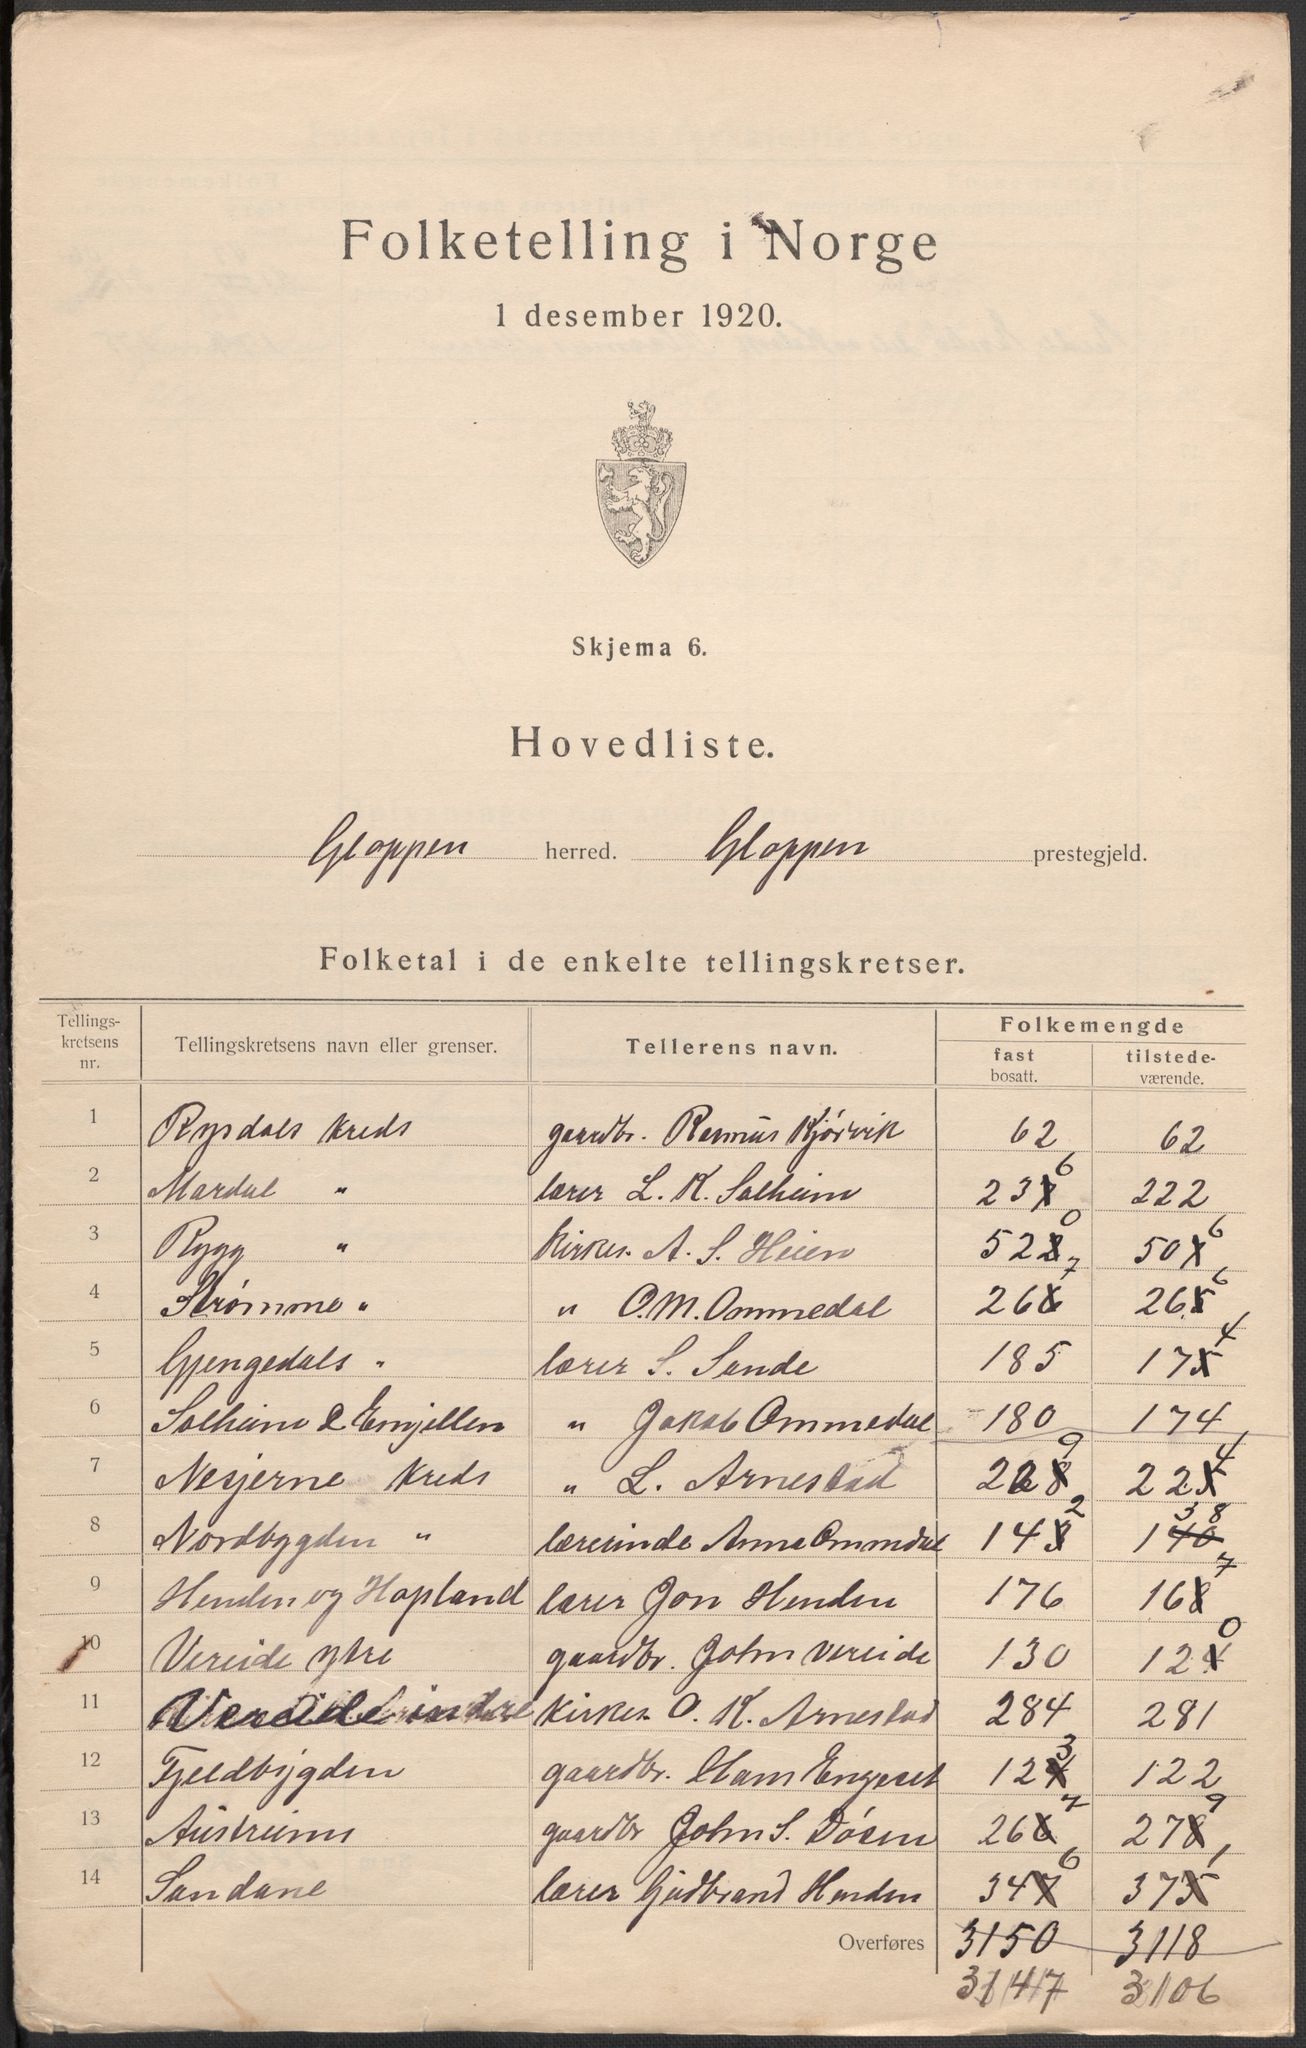 Folketelling i Norge
1 desember 1920.
Skjema 6.
Hovedliste.
Gloppen herred. Gloppen prestegjeld.
Folketal i de enkelte tellingskretser.
Tellings-kretsens nr. Tellingskretsens navn eller grenser. Tellerens navn. Folkemengde
fast bosatt. tilstede-værende.
1 Rysdals Kreds gaardbr. Rasmus Kjørvik 62 62
2 Mardal " lærer L. K. Solheim 236 222
3 Rygg " Kirkes. A. S. Heien 520 506
4 Strømme " " O. M. Ommedal 267 266
5 Gjengedals " lærer S. Sande 185 174
6 Solheim & Emjellen " Jakob Ommedal 180 174
7 Nesjerne Kreds " L. Arnestad 229 224
8 Nordbygden " lærerinde Anna Ommedal 142 138
9 Henden og Hopland lærer Jon Henden 176 167
10 Vereide ytre gaardbr. John Vereide 130 120
11 Vereide indre Kirkes. O. K. Arnestad 284 281
12 Fjeldbygden gaardbr. Hans Engeset 123 122
13 Austrums gaardbr John S. Døsen 267 279
14 Sandane lærer Gudbrand Henden 346 371
Overføres 3150 3118
3147 3106